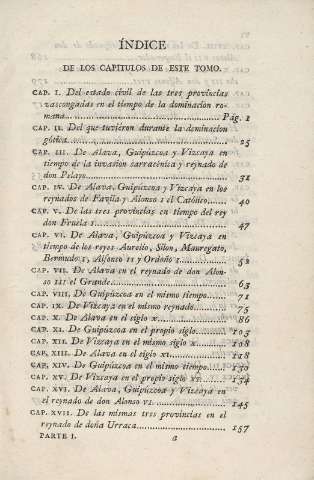 ÍNDICE
DE LOS CAPITULOS DE ESTE TOMO.
CAP. I. Del estado civil de las tres provincias
vascongadas en el tiempo de la dominacion ro-
mana. Pág. 1
CAP. II. Del que tuvieron durante la dominacion
gótica. 25
CAP. III. De Alava, Guipúzcoa y Vizcaya en
tiempo de la invasion sarracénica y reynado de
don Pelayo. 31
CAP. IV. De Alava, Guipúzcoa y Vizcaya en los
reynados de Favila y Alonso I el Católico. 40
CAP. V. De las tres provincias en tiempo del rey
don Fruela I. 47
CAP. VI. De Alava, Guipúzcoa y Vizcaya en
tiempo de los reyes Aurelio, Silon, Mauregato,
Bermudo I, Alfonso II y Ordoño I. 52
CAP. VII. De Alava en el reynado de don Alon-
so III el Grande. 63
CAP. VIII. De Guipúzcoa en el mismo tiempo. 71
CAP. IX. De Vizcaya en el mismo reynado. 75
CAP. X. De Alava en el siglo X. 86
CAP. XI. De Guipúzcoa en el propio siglo. 103
CAP. XII. De Vizcaya en el mismo siglo X. 108
CAP. XIII. De Alava en el siglo XI. 118
CAP. XIV. De Guipúzcoa en el mismo tiempo. 130
CAP. XV. De Vizcaya en el propio siglo XI. 134
CAP. XVI. De Alava, Guipúzcoa y Vizcaya en
el reynado de don Alonso VI. 145
CAP. XVII. De las mismas tres provincias en el
reynado de doña Urraca. 157
PARTE I. a